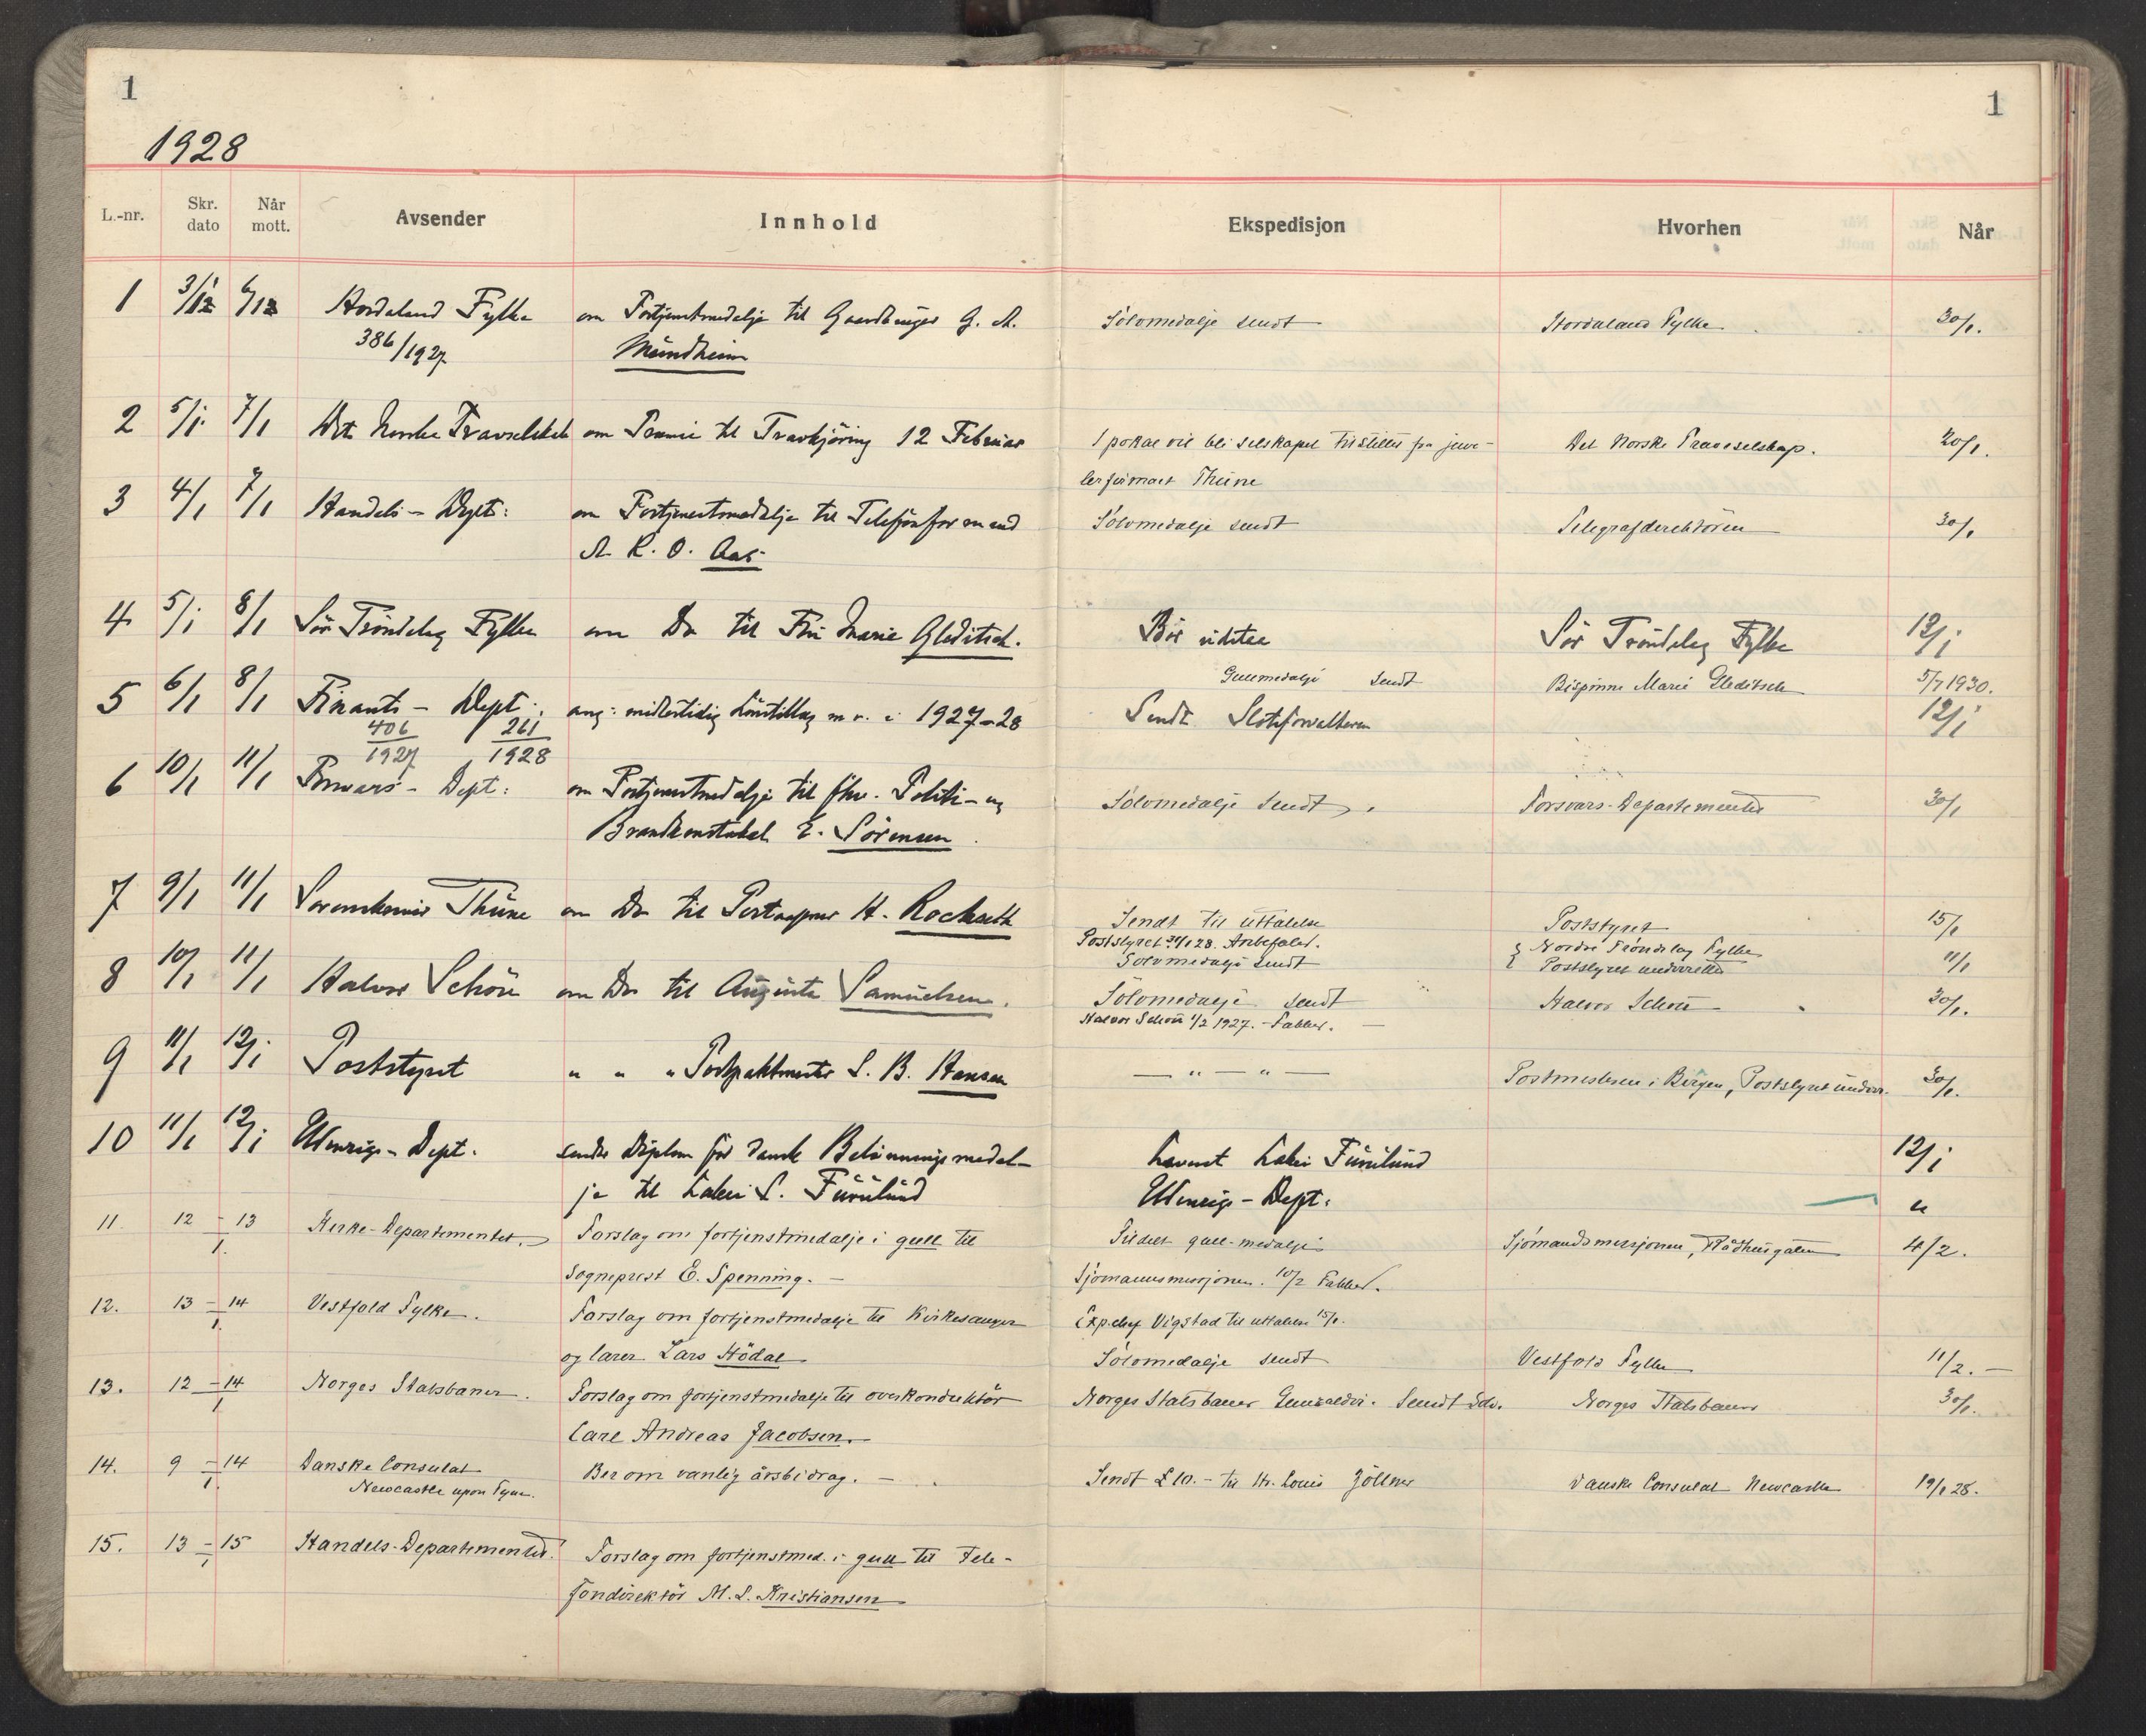 1
1
1928
L.-nr. Skr. dato Når mott. Avsender Innhold Ekspedisjon Hvorhen Når
1 3/1 6/1 Hordaland Fylke om Fortjenstmedalje til Gaardbruger G. A. Sölvmedalje sendt Hordaland Fylke 30/1.
386/1927 Mundheim
2 5/1 7/1 Det Norske Travselskab om Præmie til Travkjöring 12 Februar 1 pokal vil bli selskapet tilstillet fra juve- Det Norske Traveselskap. 20/1.
lerfirmaet Thune
3 4/1 7/1 Handels-Dept: om Fortjenstmedalje til Telefonformand Sölvmedalje sendt Telegrafdirektören 30/1
A. K. O. Aas.
4 5/1 8/1 Sör Tröndelag Fylke om Do til Fru Marie Gleditsch. Bör utstaa Sör Tröndelag Fylke 12/1
Gullmedalje sendt Bispinne Marie Gleditsch 5/7 1930.
5 6/1 8/1 Finants-Dept: ang: midlertidig Lönstillæg m.v. i 1927-28 Sendt Slotsforvalteren 12/1
406/1927 261/1928
6 10/1 11/1 Forsvars-Dept: om Fortjenstmedalje til fhv. Politi- og Sölvmedalje sendt Forsvars-Departementet 30/1
Brandkonstabel E. Sörensen.
7 9/1 11/1 Sorenskriver Thune om Do til Postaapner H. Rockseth Sendt til uttalelse Poststyret 15/1
Poststyret 21/1 28. Anbefalet. Nordre Tröndelag Fylke
Sölvmedalje sendt Poststyret underrettet 11/1
8 10/1 11/1 Halvor Schou om Do til Augusta Samuelsen. Sölvmedalje sendt Halvor Schou 30/1.
Halvor Schou 1/2 1927. - Takker.
9 11/1 12/1 Poststyret " " " Postpakkmester S. B. Hansen — " — " — Postmesteren i Bergen, Poststyret underr. 30/1.
10 11/1 12/1 Utenrigs-Dept. sender Diplom for dansk Belönningsmedal- Levert Lakei Furulund 12/1
je til Lakei S. Furulund Utenrigs-Dept: "
11. 12 - 13/1. Kirke-Departementet. Forslag om fortjenstmedalje i gull til Tildelt gull-medalje Sjömandsmisjonen, Rådhusgaten 4/2.
Sogneprest E. Spenning. — Sjömannsmisjonen. 10/2 Takker.
12. 13 - 14/1. Vestfold Fylke. Forslag om fortjenstmedalje til Kirkesanger Exp.chef Vigstad til uttalelse 15/1.
og lærer Lars Hödal Sölvmedalje sendt Vestfold Fylke 11/2. —
13. 12 - 14/1 Norges Statsbaner. Forslag om fortjenstmedalje til overkonduktör Norges Statsbaner Generaldir. Sendt Sölv. Norges Statsbaner 30/1.
Carl Andreas Jacobsen. —
14. 9 - 14/1. Danske Consulat Ber om vanlig årsbidrag. — Sendt £ 10.- til Hr. Louis Zöllner Danske Consulat Newcastle 19/1 28.
Newcastle upon Tyne.
15. 13 - 15/1 Handels-Departementet. Forslag om fortjenstmed. i gull til Tele-
fondirektör M. S. Kristiansen